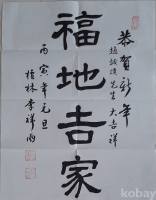 恭賀新年
先生大吉祥
福地吉家
丙寅年元旦
桂林李祥雨
kobay